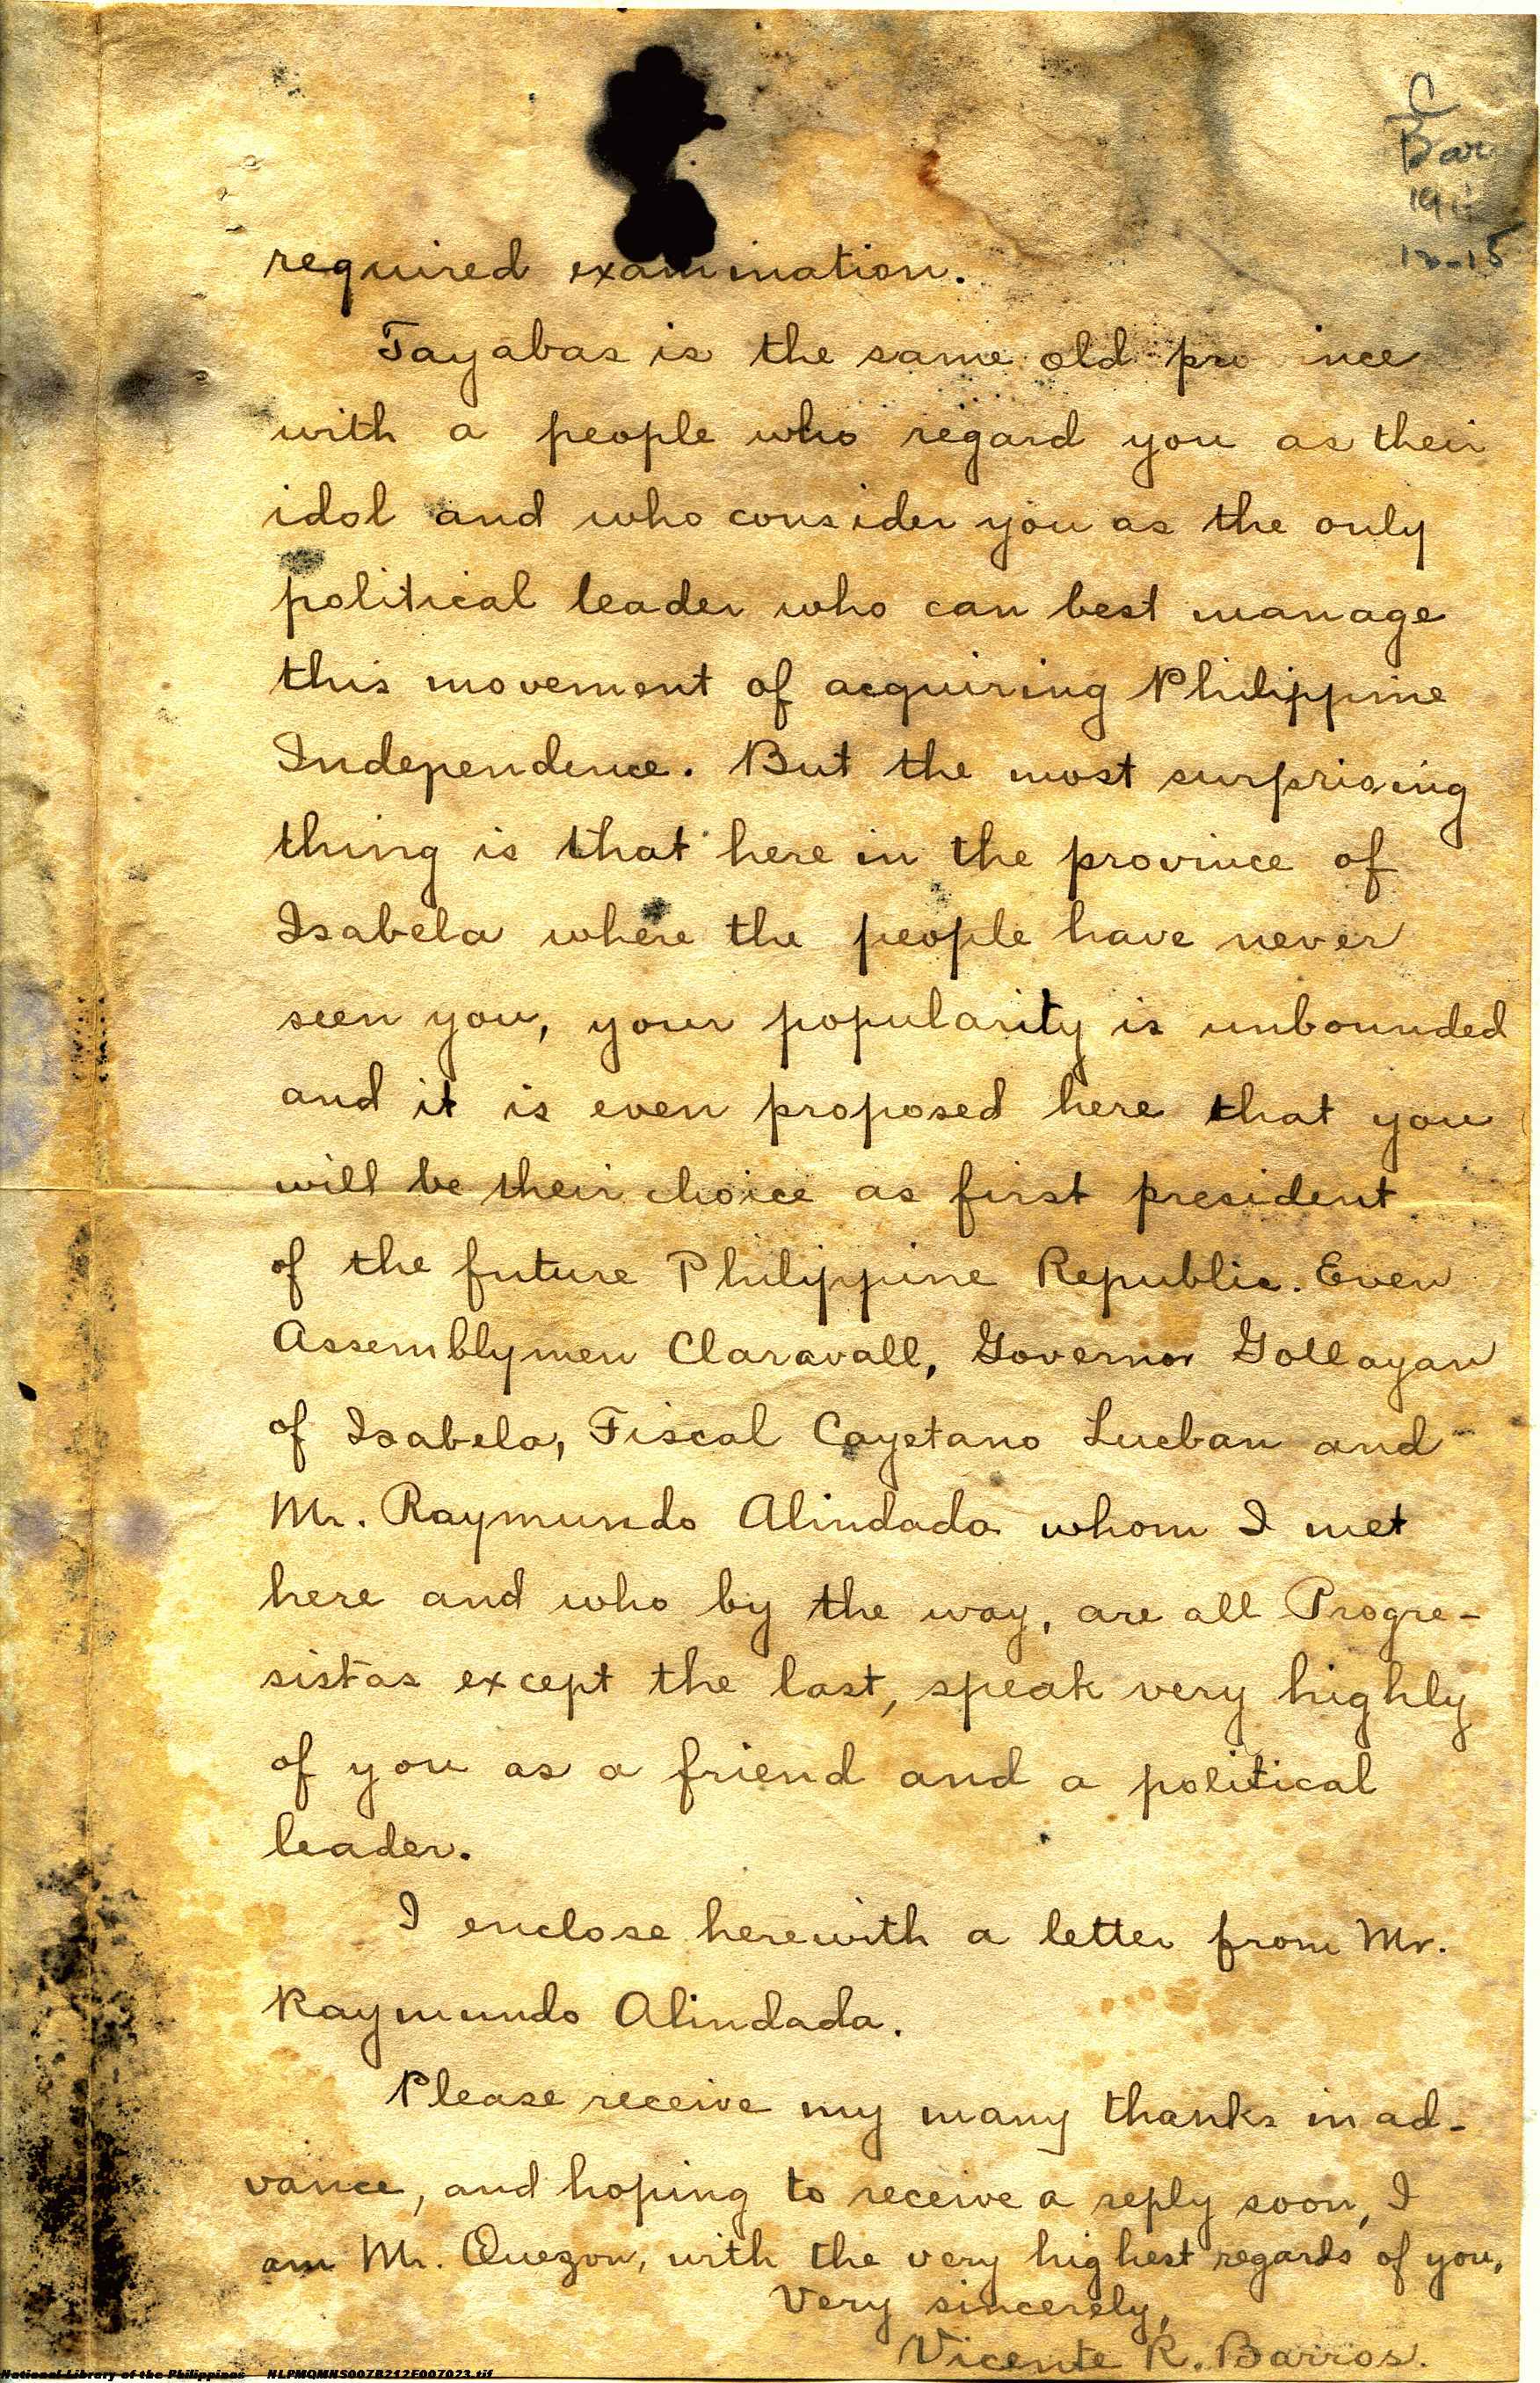 C
Bar
12-15
required examination.
Tayabas is the same old pro ince
with a people who regard you as their
idol and who consider you as the only
political leader who can best manage
this movement of acquiring Philippine
Independence. But the most surprising
thing is that here in the province of
Isabela where the people have never
seen you, your popularity is unbounded
and it is even proposed here that you
will be their choice as first president
of the future Philippine Republic. Even
Assemblymen Claravall, Governor Gollayan
of Isabela, Fiscal Cayetano Lucban and
Mr. Raymundo Alindada whom I met
here and who by the way, are all Progre-
sistas except the last, speak very highly
of you as a friend and a political
leader.
I enclose herewith a letter from Mr.
Raymundo Alindada.
Please receive my many thanks in ad-
vance, and hoping to receive a reply soon, I
am Mr. Quezon, with the very highest regards of you,
Very sincerely,
Vicente R. Barros.
National Library of the Philippines NLPMQMNS007B212F007023.tif